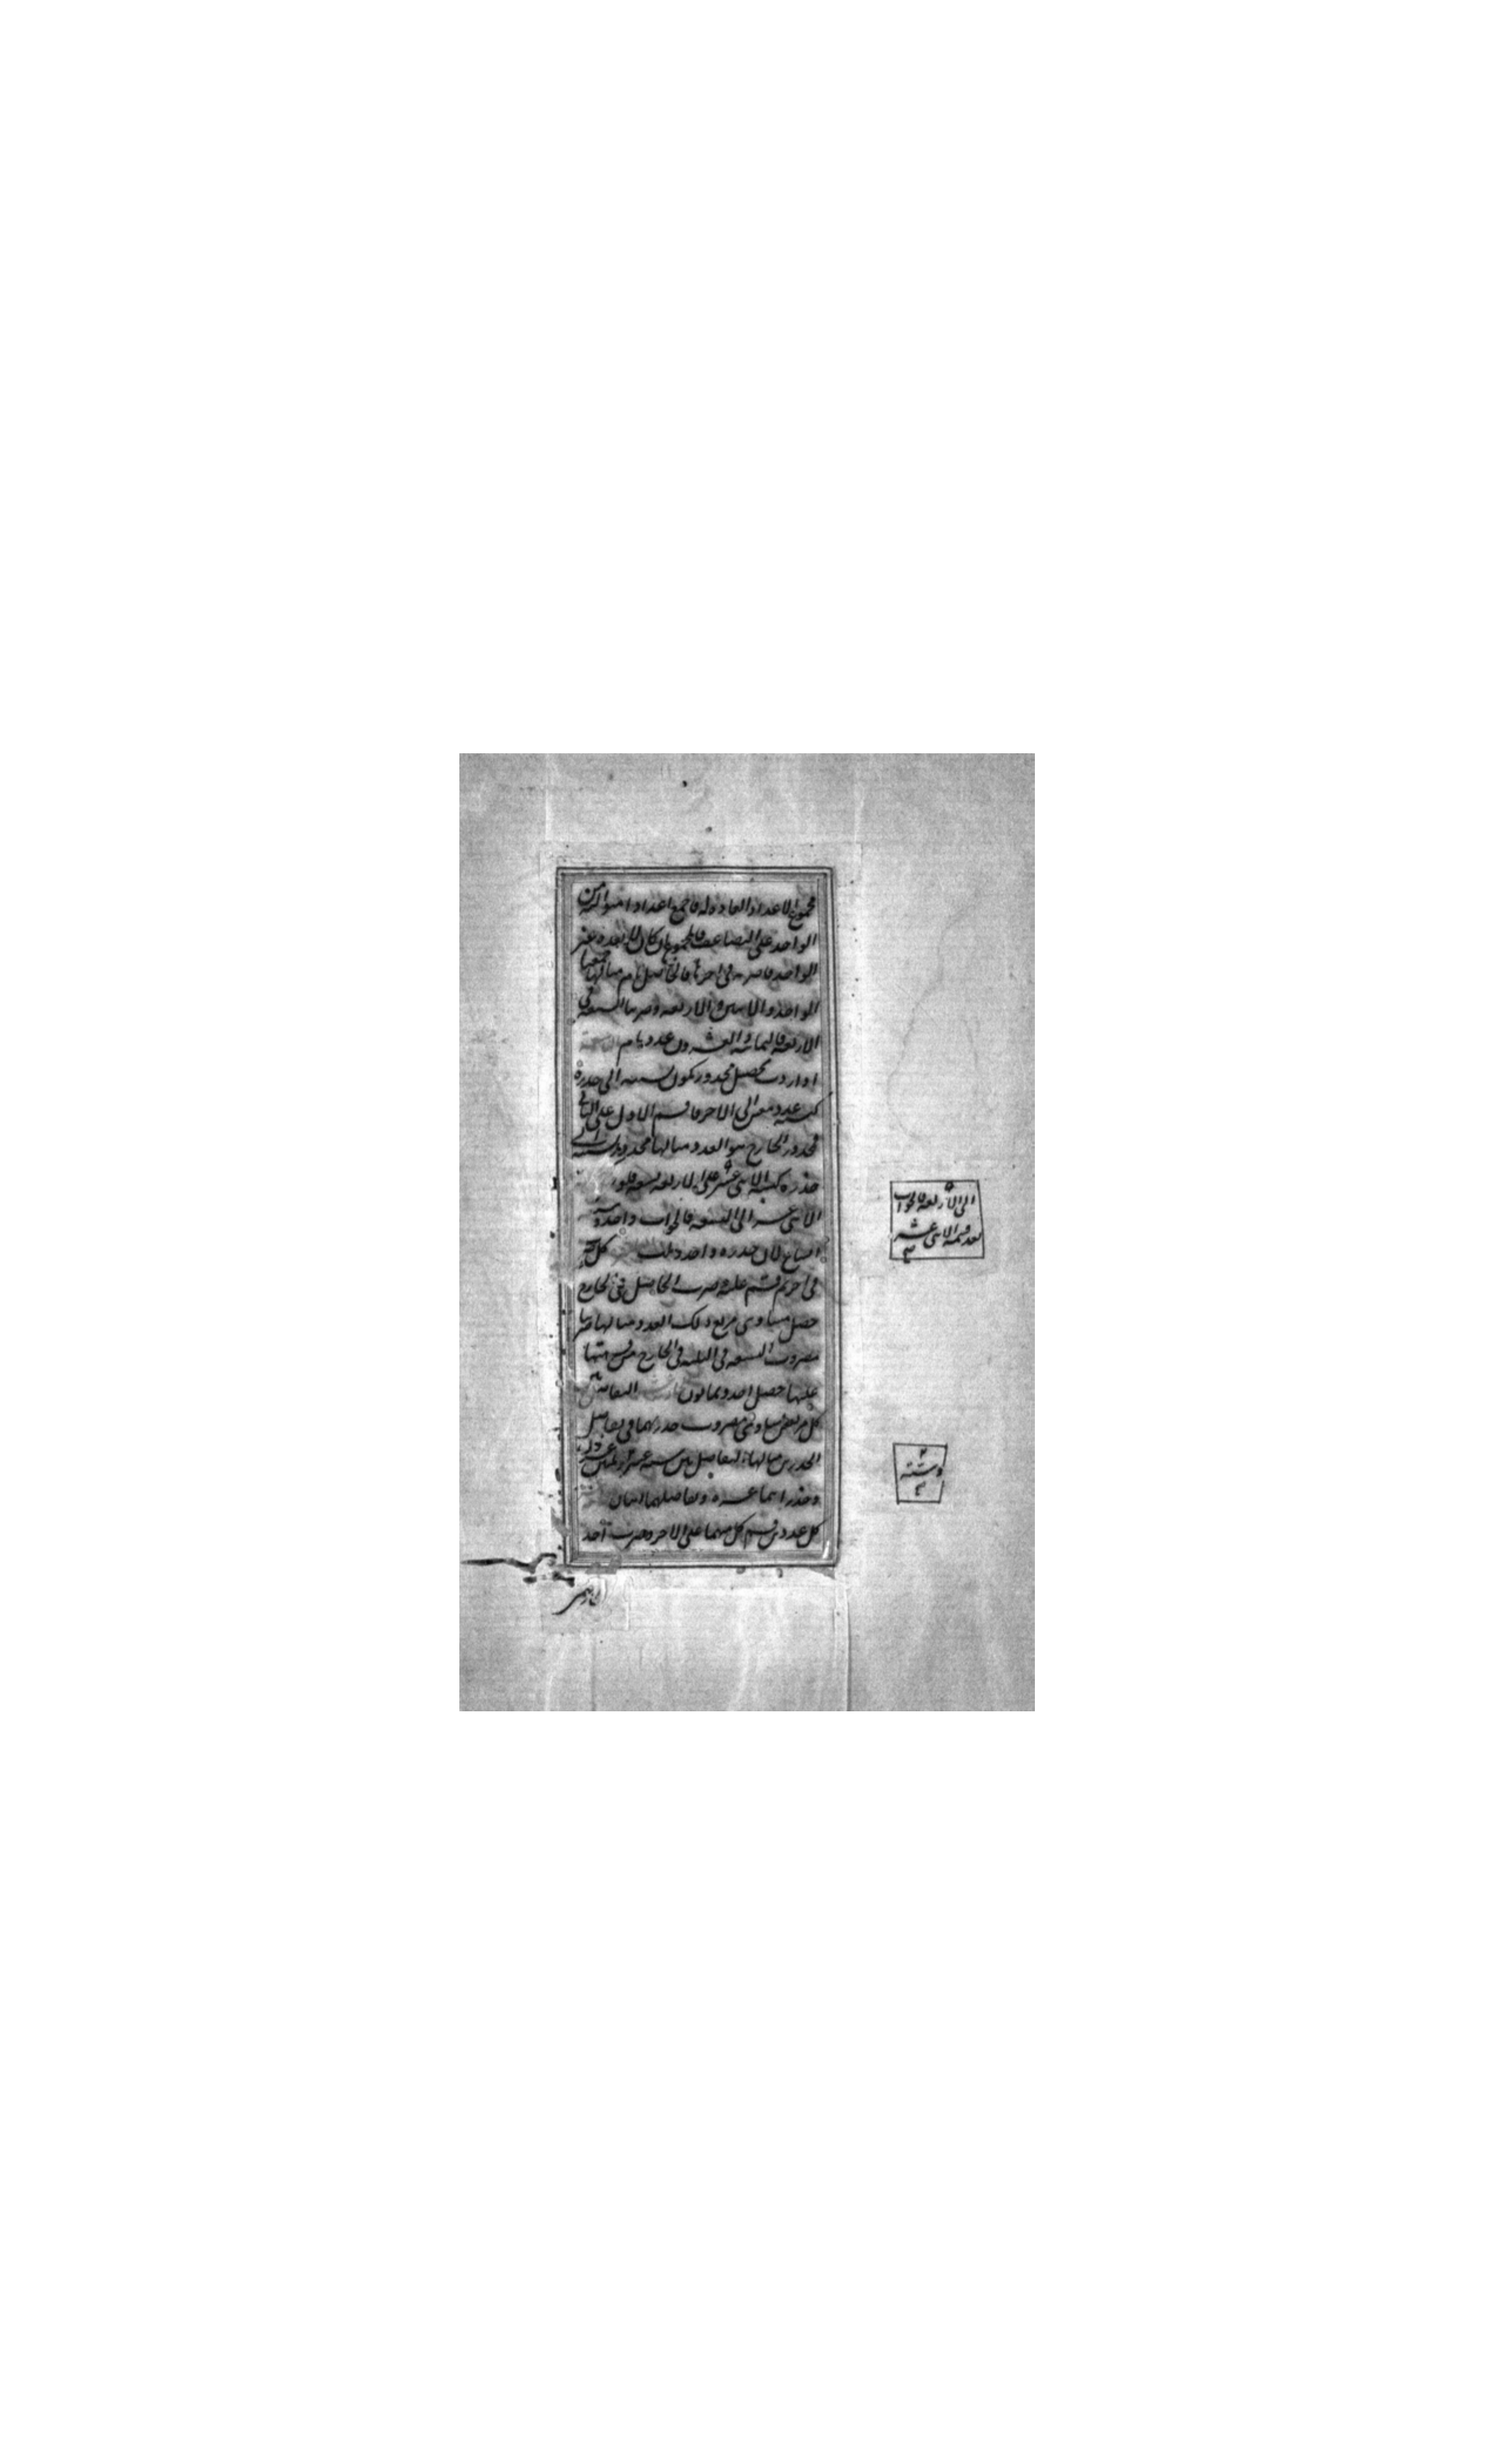 مجموع الاعداد العادة له فاجمع اعدادا متوالية من
الواحد على التضاعف فالمجموع ان كان لا يعده غير
الواحد فاضربه في آخرها فالحاصل تام مثالها جمعنا
الواحد والاثنين والاربعة وضربنا السبعة في
الاربعة فالثمانية والعشرون عدد تام
اذا اردت تحصيل مجذور يكون نسبته الى جذره
كنسبة عدد معين الى الآخر فاقسم الاول على الثاني
فمجذور الخارج هو العدد مثالها مجذور نسبته الى
جذره كنسبة الاثنى عشر على الاربعة تسعة فلو
الاثنى عشر الى التسعة فالجواب واحد و
اتساع لان جذره واحد وثلث كل
في آخر ثم قسم عليه وضرب الحاصل في الخارج
حصل مساوى مربع ذلك العدد مثالها ضربنا
مضروب التسعة في الثلثة في الخارج من قسمتها
عليها حصل احد وثمانون التفاضل بين
كل مربعين يساوى مضروب جذريهما في تفاضل
الجذرين مثالها التفاضل بين ستة عشر و
وجذراهما عشرة وتفاضلهما اثنان
كل عددين قسم كل منهما على الآخر وضرب احد
الى الاربعة فالجواب
بعد قسمة الاثنى عشر
وستة